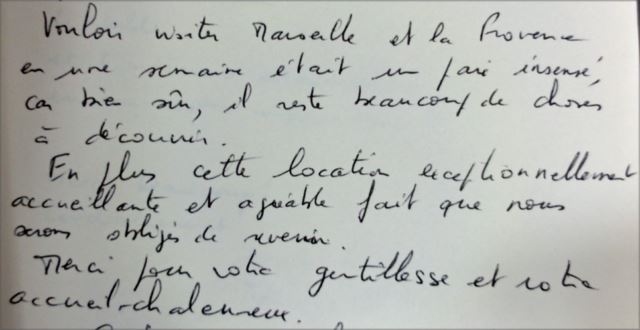 Vouloir visiter Marseille et la Provence
en une semaine était un pari insensé,
car bien sûr, il reste beaucoup de choses
à découvrir.
En plus cette location exceptionnellement
accueillante et agréable fait que nous
serons obligés de revenir.
Merci pour votre gentillesse et votre
accueil chaleureux.